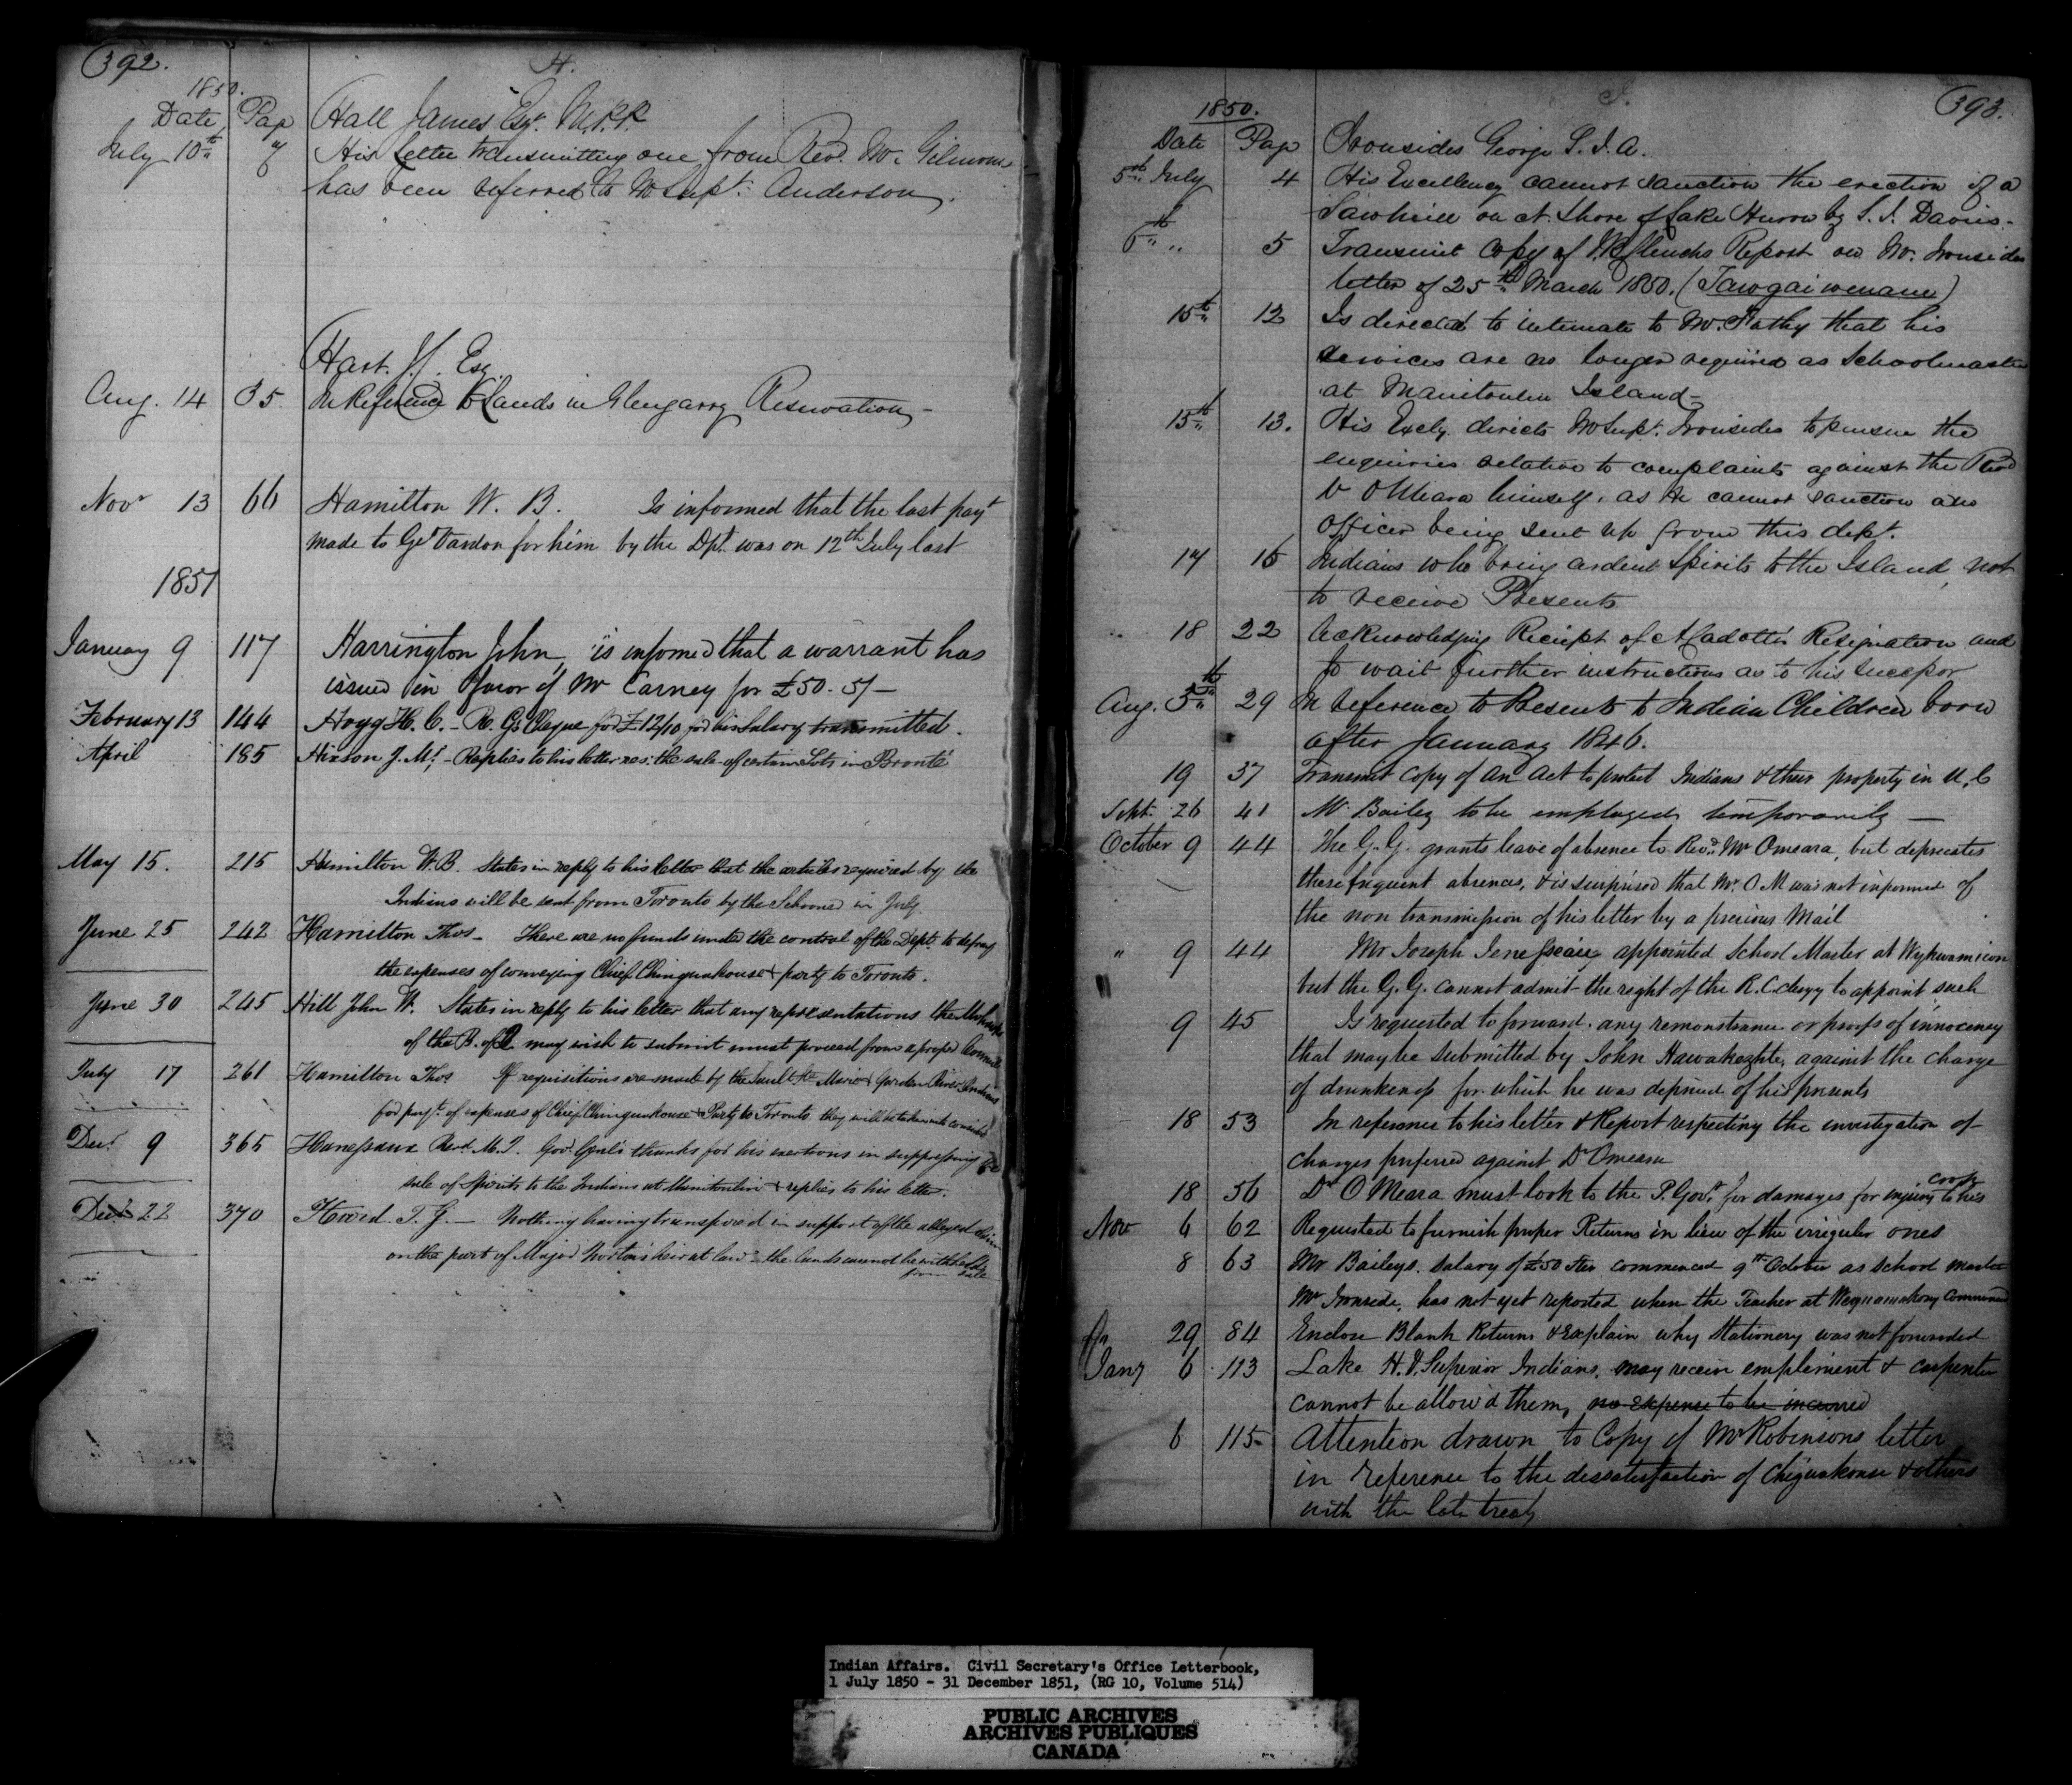 392.
H.
1850.
Date Page Hall James Esqr. M.P.P.
July 10th 7 His Letter transmitting one from Revd. Mr. Gilmour
has been referred to Mr Supt. Anderson.
Hart. J. Esq.
Aug. 14 35 In Reference to Lands in Glengarry Reservation
Novr 13 66 Hamilton W. B. Is informed that the last payt
made to Ge Vardon for him by the Dpt. was on 12th July last
1851
January 9 117 Harrington John, is informed that a warrant has
issued in favor of Mr Carney for £50-5/-
February 13 144 Hogg H. C. - R. G's Cheque for £12/10 for his Salary transmitted.
April 185 Hixson J. M. - Replies to his letter res: the sale of certain Lots in Bronté
May 15. 215 Hamilton W. B. States in reply to his letter that the articles required by the
Indians will be sent from Toronto by the Schooner in July
June 25 242 Hamilton Thos - There are no funds under the control of the Dept. to defray
the expenses of conveying Chief Chinguakouse & party to Toronto.
June 30 245 Hill John W. States in reply to his letter that any representations the Mohawks
of the B. of Q may wish to submit must proceed from a proper Council
July 17 261 Hamilton Thos If requisitions are made by the Sault Ste Marie & Garden River Indians
for payt. of expenses of Chief Chinguakouse & Party to Toronto they will be taken into
Decr. 9 365 Revd. M. Govr. Genl's thanks for his exertions in suppressing the
sale of Spirits to the Indians at Manitoulin & replies to his letter.
Decr 22 370 T. G. - Nothing having transpired in support of the alleged claim
on the part of Major Norton's heir at law - the lands cannot be withheld
from sale
393.
I.
1850.
Date Page Ironsides George S. I. A.
5th July 4 His Excellency cannot sanction the erection of a
Sawmill on N. Shore of Lake Huron by S. J. Davis.
5 Transmit Copy of Clench's Report on Mr. Ironsides
letter of 25th March 1850. (Tawgaiwenane)
15th 12 Is directed to intimate to Mr. that his
services are no longer required as Schoolmaster
at Manitoulin Island -
15th 13. His Excly. directs Mr Supt. Ironsides to pursue the
enquiries relative to complaints against the Revd
Dr O'Meara himself, as He cannot sanction an
Officer being sent up from this dept.
17 15 Indians who bring ardent Spirits to the Island, not
to receive Presents
" 18 22 Acknowledging Receipt of Resignation and
to wait further instructions as to his Successor
Aug. 5th 29 In reference to Presents to Indian Children born
after January 1846.
19 37 Transmit Copy of An Act to protect Indians & their property in U. C
Sept. 26 41 Mr Bailey to be employed temporarily —
October 9 44 The G. G. grants leave of absence to Revd. Mr Omeara, but depreciates
these frequent absences, & is surprised that Mr. O M was not informed of
the non transmission of his letter by a previous Mail
" 9 44 Mr Joseph appointed School Master at
but the G. G. cannot admit the right of the R. C. clergy to appoint such
9 45 Is requested to forward any remonstrance or proofs of innocency
that may be submitted by John Hawakezhte, against the charge
of drunkenness for which he was deprived of his presents
18 53 In reference to his letter & Report respecting the investigation of
charges preferred against Dr Omeara
18 56 Dr O'Meara must look to the P. Govt. for damages for injury to his
Nov 6 62 Requested to furnish proper Returns in lieu of the irregular ones
8 63 Mr Baileys salary of £50 commenced 9th October as School Master
Mr Ironside, has not yet reported when the Teacher at commenced
29 84 Enclose Blank Returns & explain why Stationery was not forwarded
Jany 6 113 Lake H. & Superior Indians, may receive & carpenter
cannot be allow'd them, no expense to be incurred
6 115 Attention drawn to Copy of Mr Robinsons letter
in reference to the dissatisfaction of Chiguakouse & others
with the late treaty
Indian Affairs. Civil Secretary's Office Letterbook,
1 July 1850 - 31 December 1851, (RG 10, Volume 514)
PUBLIC ARCHIVES
ARCHIVES PUBLIQUES
CANADA